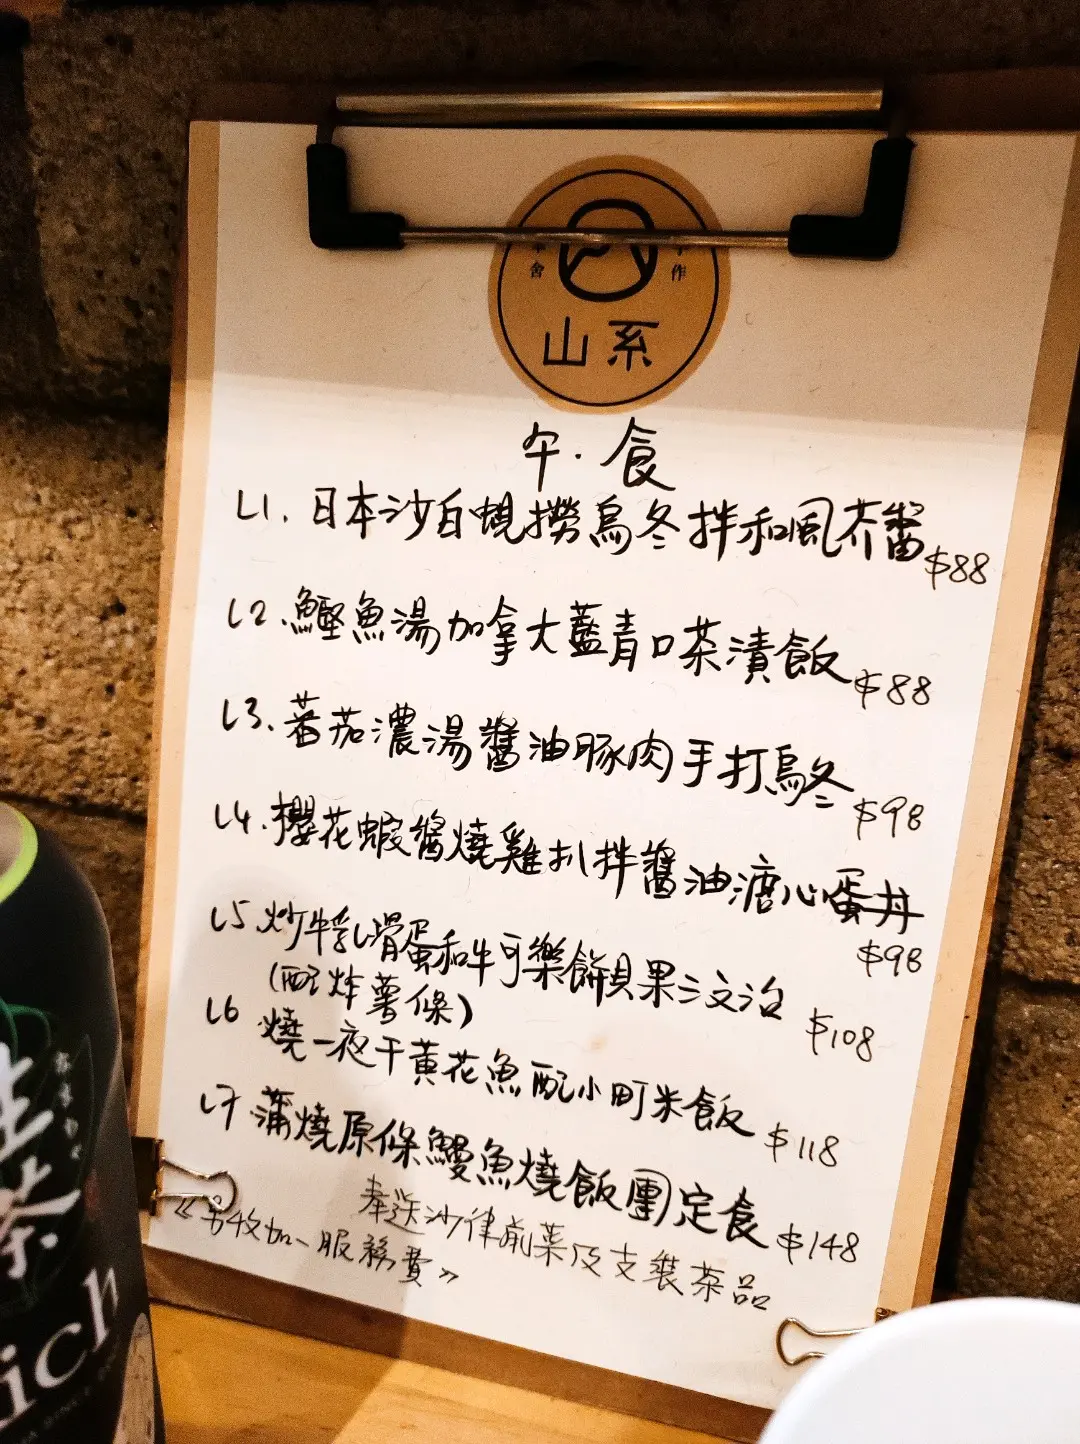 舍
作
山系
午·食
L1. 日本沙白蜆撈烏冬拌和風芥醬 $88
L2. 鰹魚湯加拿大藍青口茶漬飯 $88
L3. 蕃茄濃湯醬油豚肉手打烏冬 $98
L4. 櫻花蝦醬燒雞扒拌醬油溏心蛋丼
$98
L5 炒牛乳滑蛋和牛可樂餅貝果三文治 $108
(配炸薯條)
L6 燒一夜干黃花魚配小町米飯 $118
L7. 蒲燒原條鰻魚燒飯團定食 $148
奉送沙律前菜及支裝茶品
《另收加一服務費》
生
茶
ich